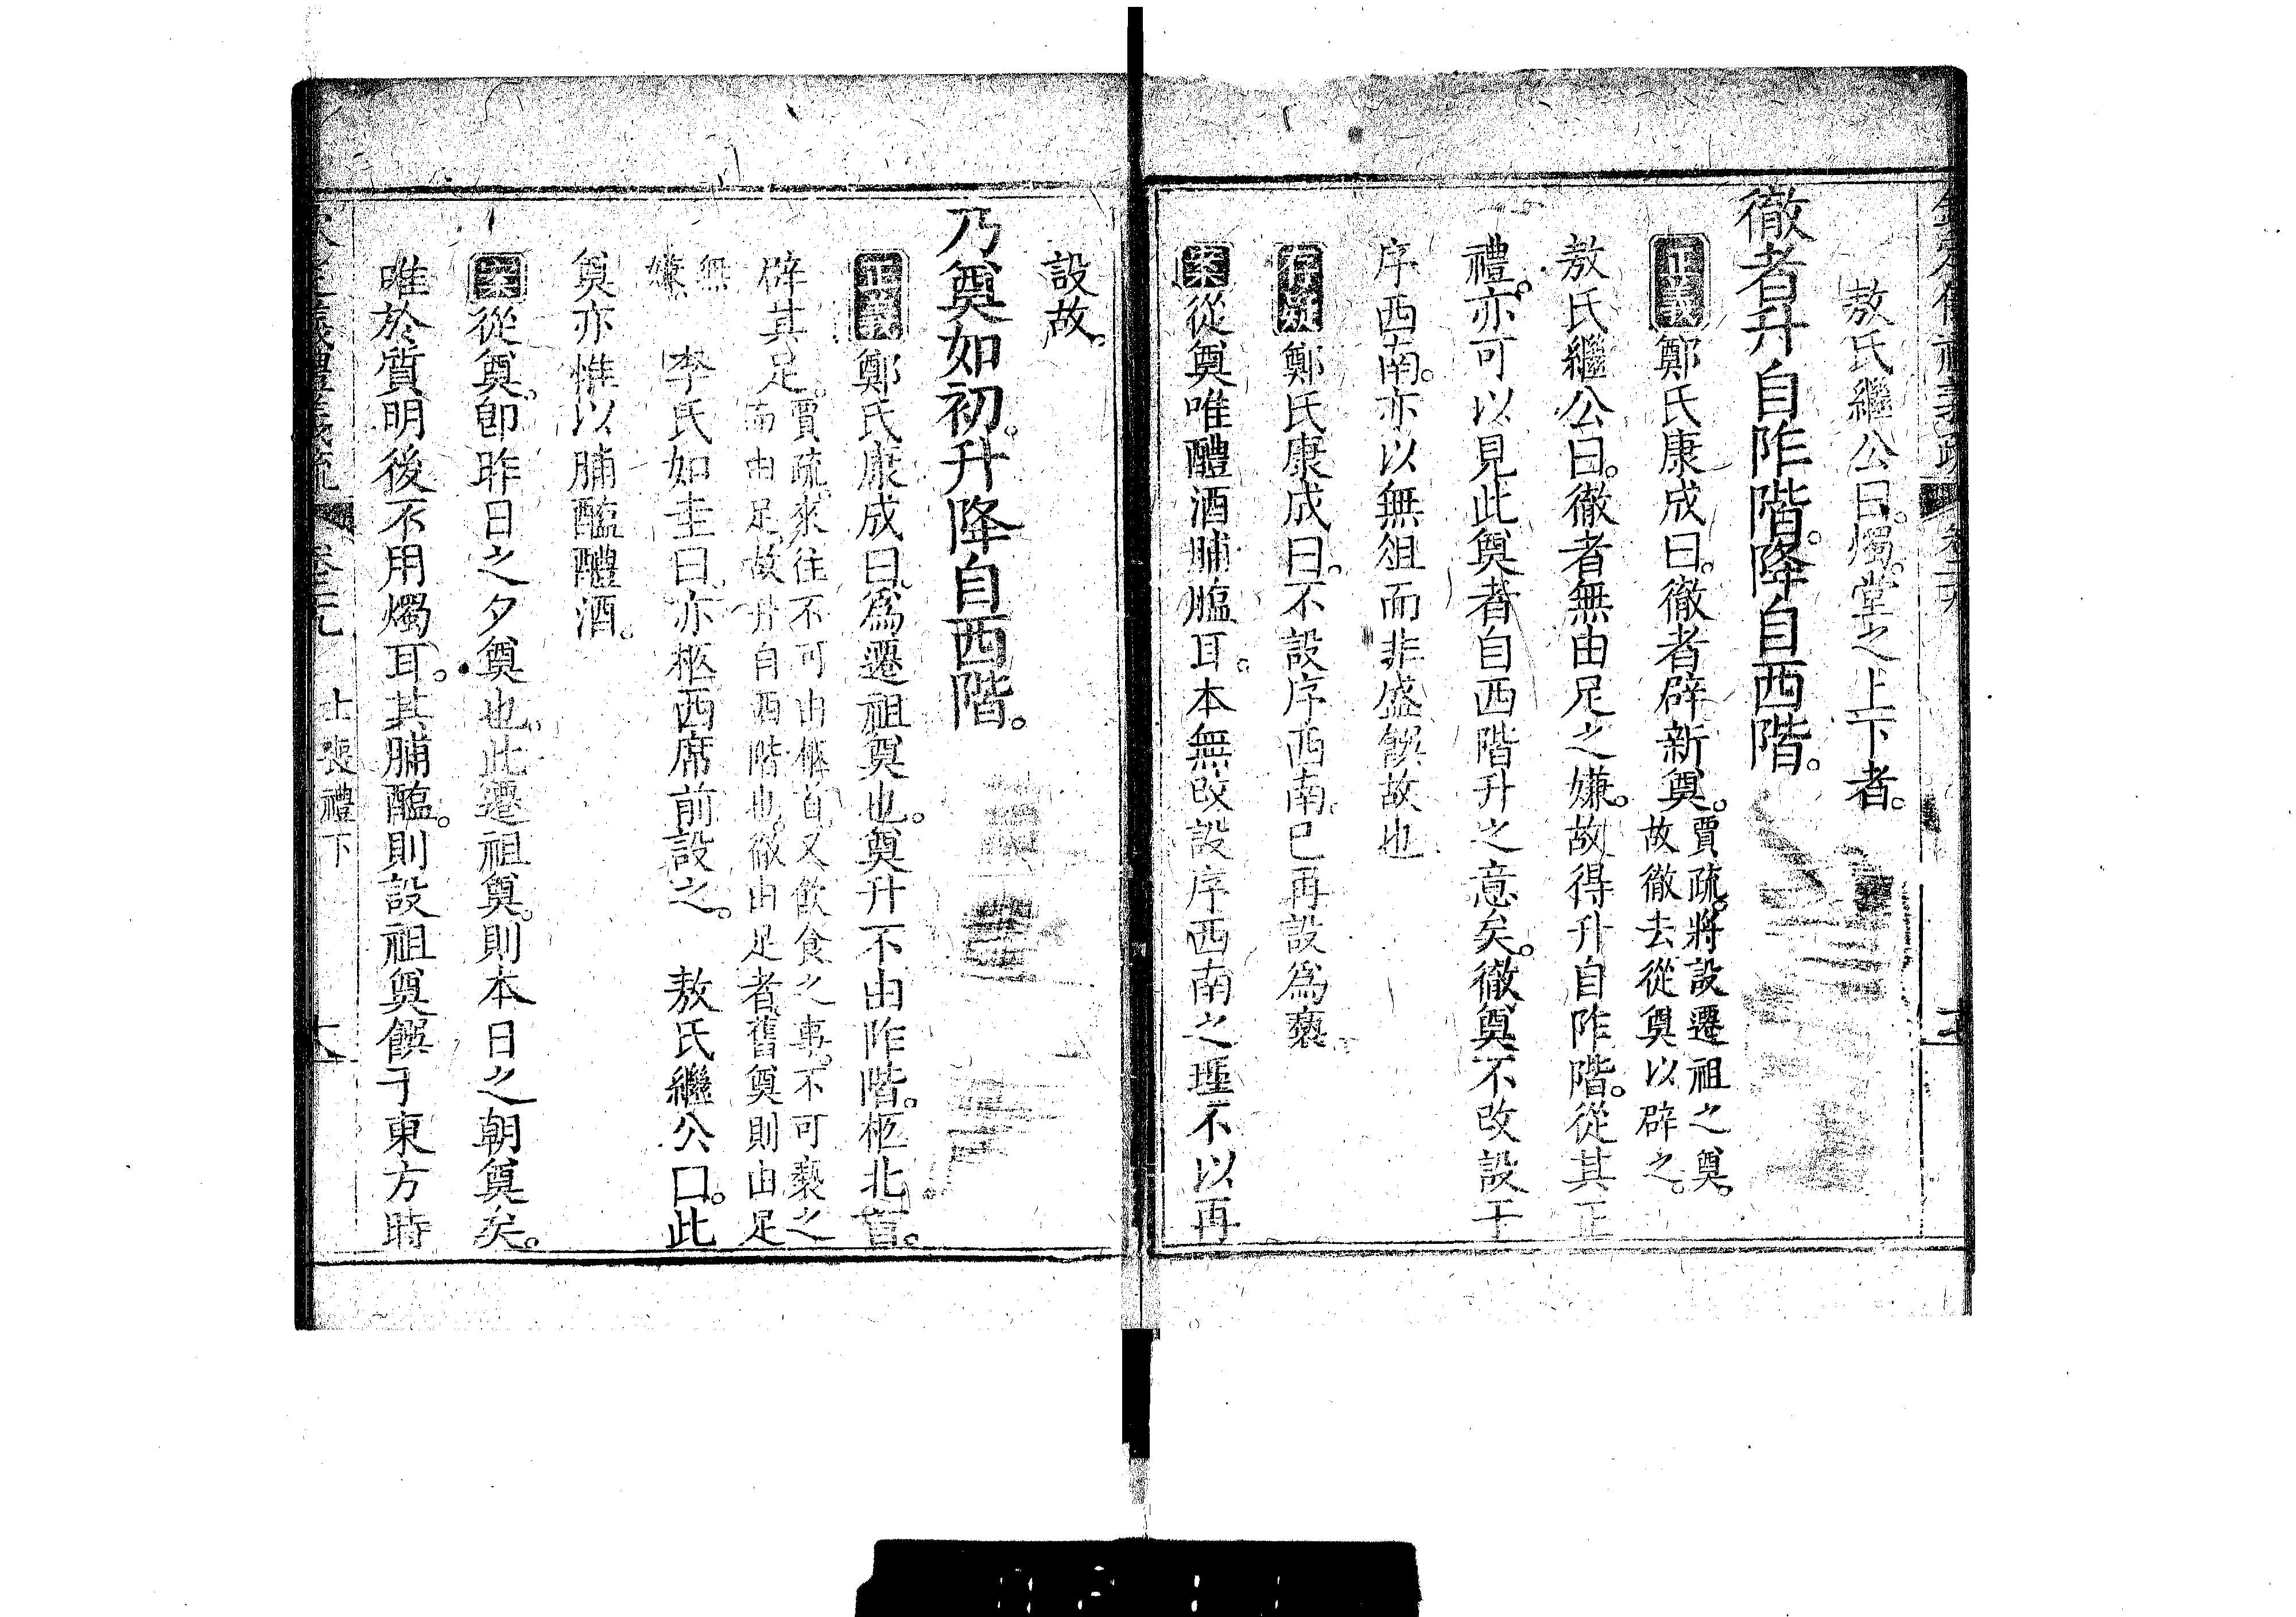 敖氏繼公曰。燭。堂之上下者。
徹者升自阼階。降自西階。
正義鄭氏康成曰。徹者辟新奠。賈疏。將設遷祖之奠。
故徹去從奠以辟之。
敖氏繼公曰。徹者無由足之嫌。故得升自阼階。從其正
禮。亦可以見此奠者自西階升之意矣。徹奠不改設于
序西南。亦以無俎而非盛饌故也
存疑鄭氏康成曰。不設序西南。已再設爲褻。
案從奠唯醴酒脯醢耳。本無改設序西南之理。不以再
設故。
乃奠如初。升降自西階。
正義鄭氏康成曰。爲遷祖奠也。奠升不由阼階。柩北首。
辟其足。賈疏。來往不可由柩首。又飲食之事。不可褻之
由足。故升自西階也。徹由足者。舊奠則由足
無
嫌。
李氏如圭曰。亦柩西席前設之。 敖氏繼公曰。此
奠亦惟以脯醢醴酒。
案從奠。卽昨日之夕奠也。此遷祖奠。則本日之朝奠矣。
唯於質明後不用燭耳。其脯醢。則設祖奠饌于東方時
士喪禮下